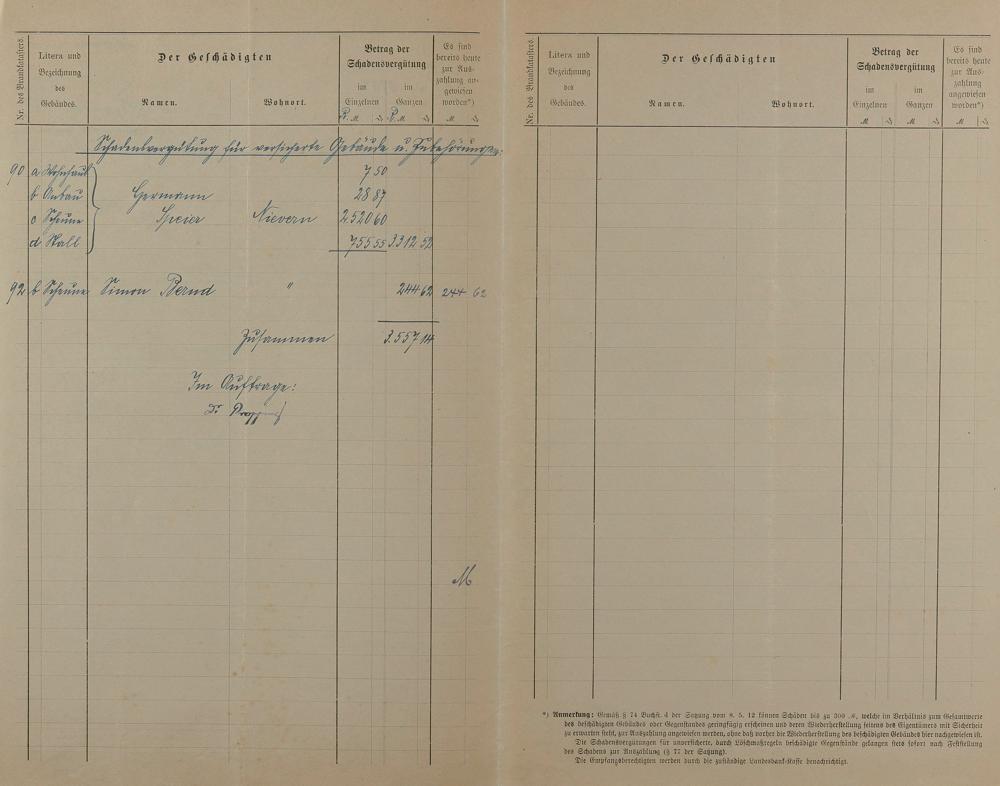 Nr. des Brandkatasters.
Litera und
Bezeichnung
des
Gebäudes.
Der Geschädigten
Namen.
Wohnort.
Betrag der
Schadensvergütung
im
Einzelnen
im
Ganzen
Es sind
bereits heute
zur Aus-
zahlung an-
gewiesen
worden*)
R. M ₰ R. M ₰ M ₰
Schadensvergütung für versicherte Gebäude u. Zubehörungen:
90 a Wohnhaus 7 50
b Anbau Hermann 28 87
c Scheune Speier Nievern 2.520 60
d Stall 755 55 3312 52
92 b Scheune Simon Bernd " 244 62 244 62
Zusammen 3.557 14
Im Auftrage:
M
Nr. des Brandkatasters.
Litera und
Bezeichnung
des
Gebäudes.
Der Geschädigten
Namen.
Wohnort.
Betrag der
Schadensvergütung
im
Einzelnen
im
Ganzen
Es sind
bereits heute
zur Aus-
zahlung
angewiesen
worden*)
M ₰ M ₰ M ₰
*) Anmerkung: Gemäß § 74 Buchst. d der Satzung vom 8. 5. 12 können Schäden bis zu 300 M, welche im Verhältnis zum Gesamtwerte
des beschädigten Gebäudes oder Gegenstandes geringfügig erscheinen und deren Wiederherstellung seitens des Eigentümers mit Sicherheit
zu erwarten steht, zur Auszahlung angewiesen werden, ohne daß vorher die Wiederherstellung des beschädigten Gebäudes hier nachgewiesen ist.
Die Schadensvergütungen für unversicherte, durch Löschmaßregeln beschädigte Gegenstände gelangen stets sofort nach Feststellung
des Schadens zur Auszahlung (§ 77 der Satzung).
Die Empfangsberechtigten werden durch die zuständige Landesbank-Kasse benachrichtigt.